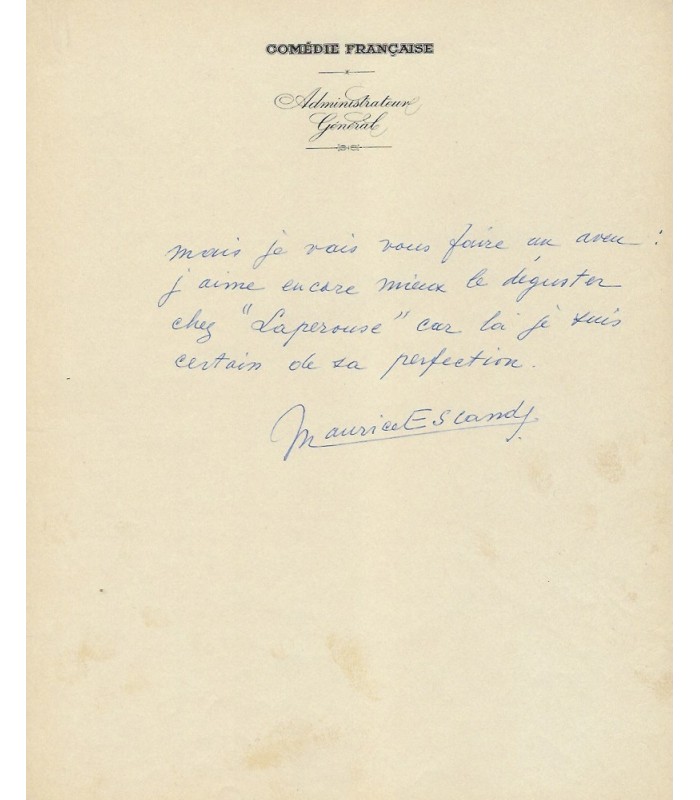 COMÉDIE FRANÇAISE
Administrateur
Général
mais je vais vous faire un aveu :
j'aime encore mieux le déguster
chez "Laperouse" car là je suis
certain de sa perfection.
Maurice Escande